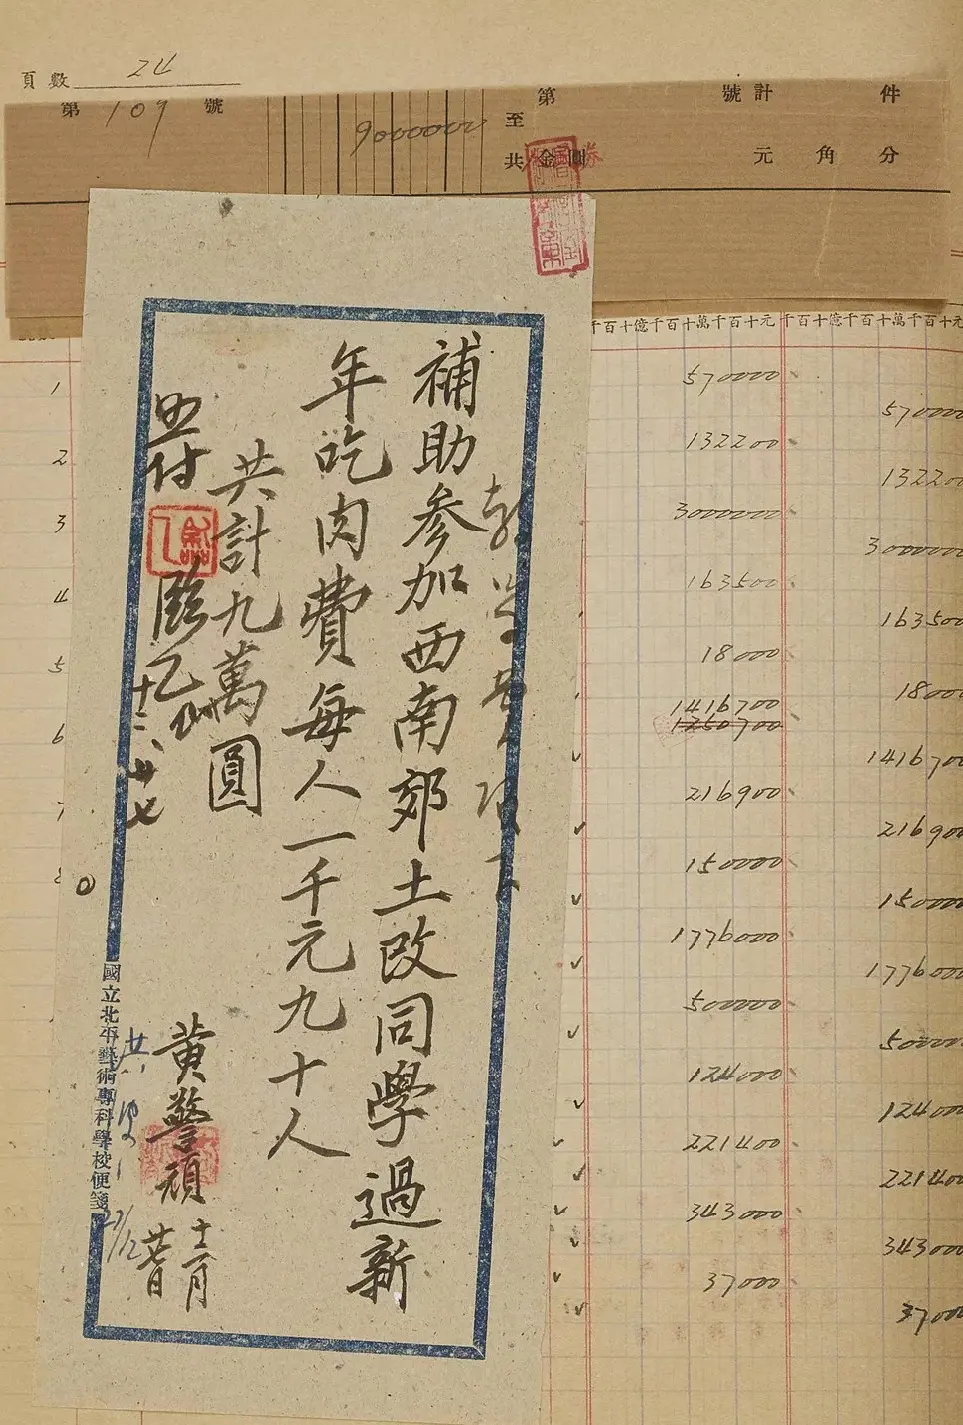 頁數 24
第 109 號
9000000
第 號 計 件
至
共 金圓券 元 角 分
千百十億千百十萬千百十元
千百十億千百十萬千百十元
補助参加西南郊土改同學過新
年吃肉費每人一千元九十人
共計九萬圓
黄警頑
十二月
廿七日
照付
十二、廿七
國立北平藝術專科學校便箋
27/12
1
2
3
4
5
6
7
8
570000
570000
132200
132200
3000000
3000000
163500
163500
18000
18000
1416700
1250700
1416700
216900
216900
150000
150000
1776000
1776000
500000
500000
124000
124000
221400
221400
343000
343000
37000
37000